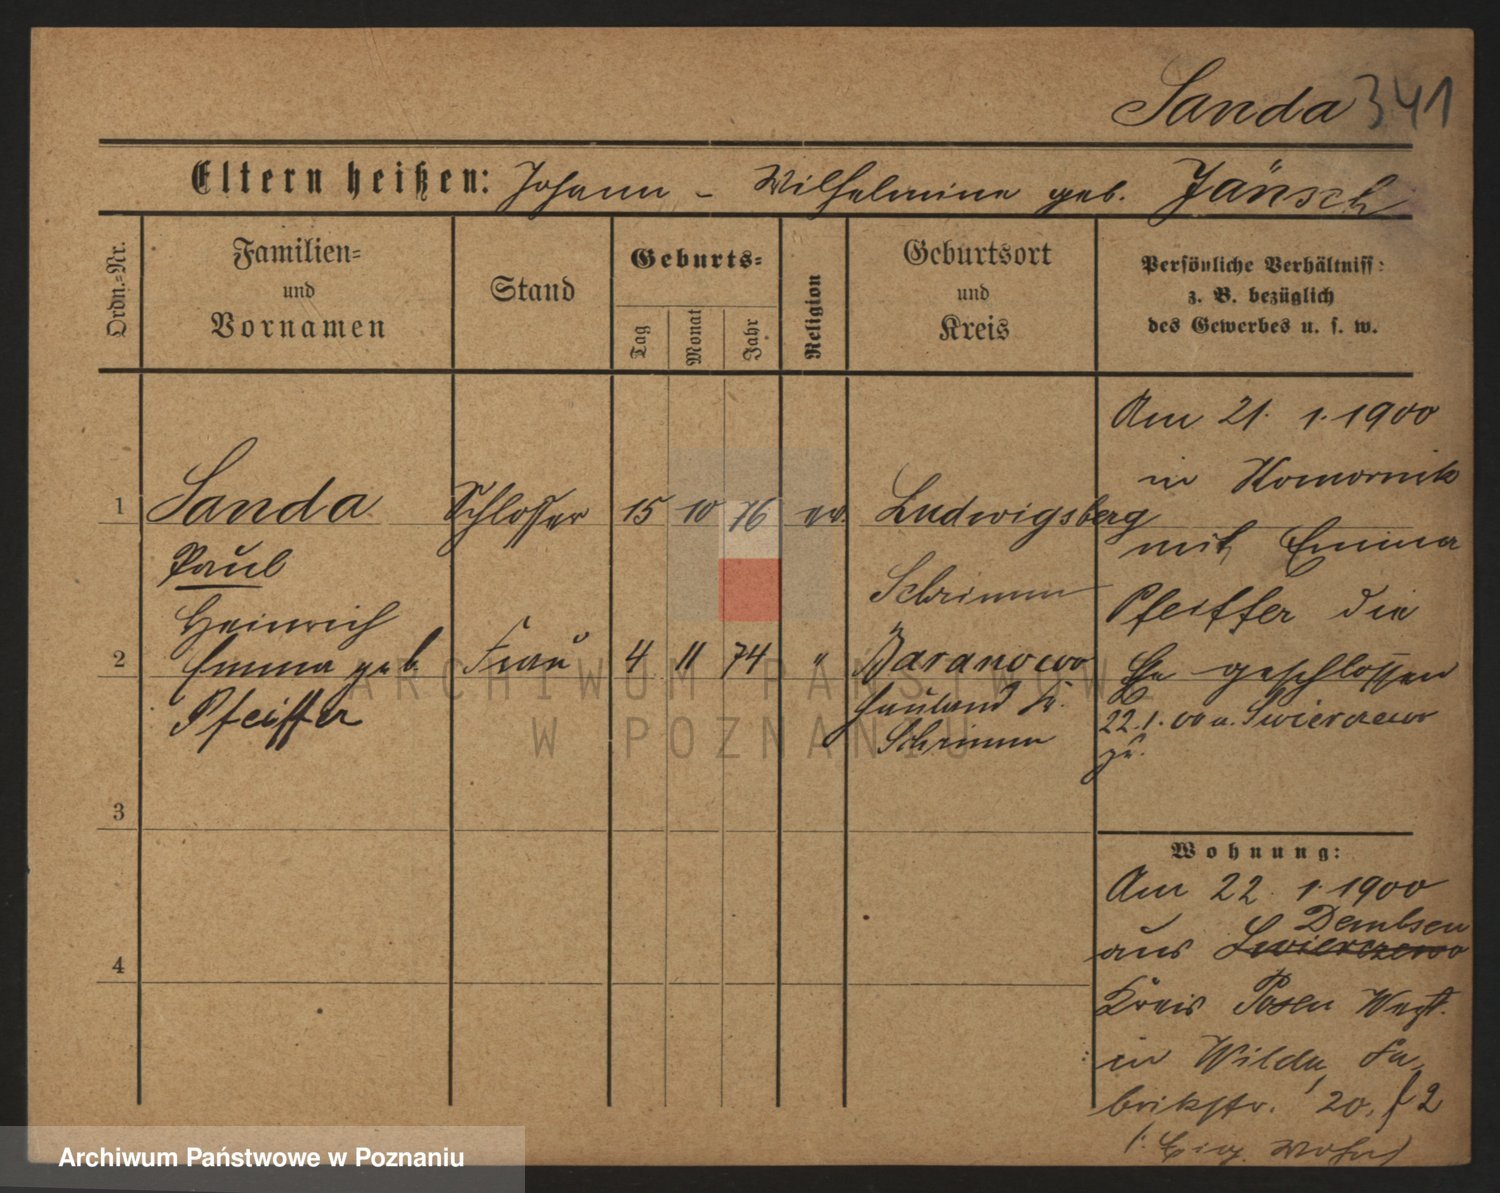 Sanda 341
Eltern heißen: Johann - Wilhelmine geb. Jänsch
Ordn.-Nr.
Familien=
und
Vornamen
Stand
Geburts=
Tag
Monat
Jahr
Religion
Geburtsort
und
Kreis
Persönliche Verhältniss:
z. B. bezüglich
des Gewerbes u. s. w.
1 Sanda Schlosser 15 10 76 ev. Ludwigsberg
Paul Schrimm
Heinrich
2 Emma geb. Frau 4 11 74 " Baranowo
Pfeiffer Hauland Kr.
Schrimm
3
4
Am 21. 1. 1900
in Komornik
mit Emma
Pfeiffer die
Ehe geschlossen
22. 1. 00 a. Swierczewo
zu.
Wohnung:
Am 22. 1. 1900
Dembsen
aus Swierczewo
Kreis Posen West.
in Wilda, Fa-
brikstr. 20, 2
ARCHIWUM PAŃSTWOWE
W POZNANIU
Archiwum Państwowe w Poznaniu